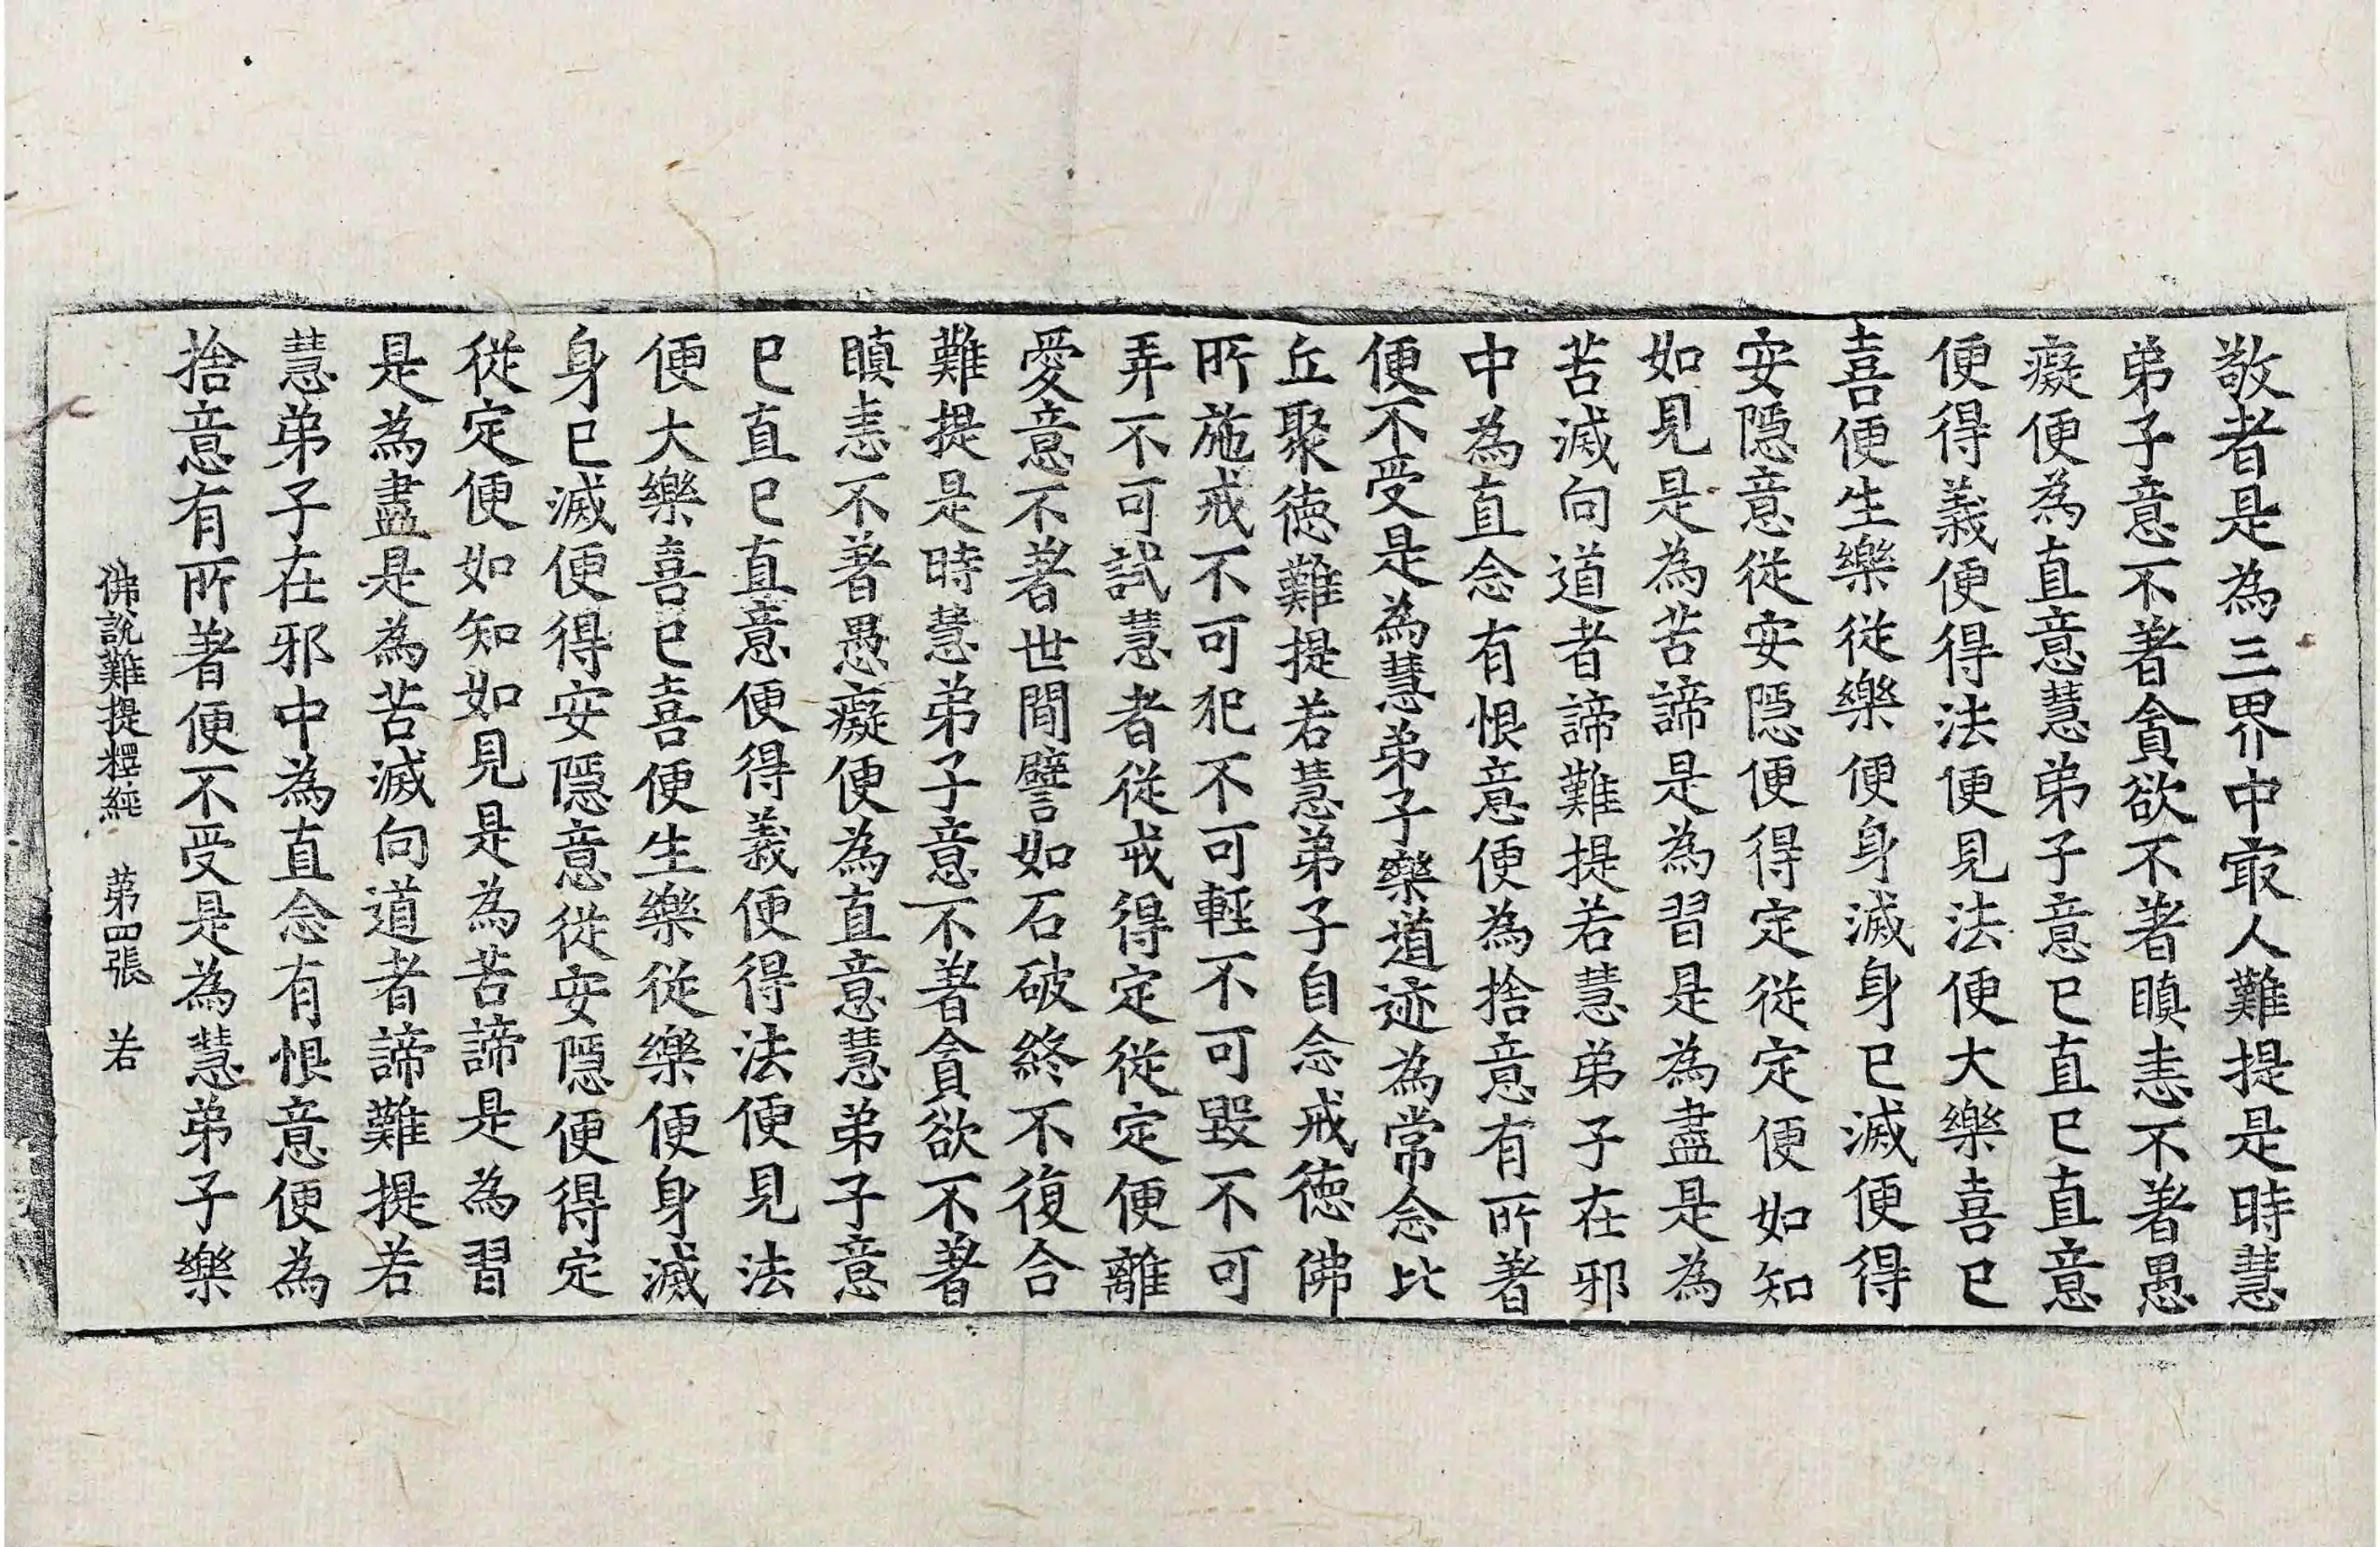 敬者是為三界中㝡人難提是時慧
弟子意不著貪欲不著瞋恚不著愚
癡便為直意慧弟子意已直已直意
便得義便得法便見法便大樂喜已
喜便生樂從樂便身滅身已滅便得
安隱意從安隱便得定從定便如知
如見是為苦諦是為習是為盡是為
苦滅向道者諦難提若慧弟子在邪
中為直念有恨意便為捨意有所著
便不受是為慧弟子樂道迹為常念比
丘聚德難提若慧弟子自念戒德佛
所施戒不可犯不可輕不可毀不可
弄不可試慧者從戒得定從定便離
愛意不著世間譬如石破終不復合
難提是時慧弟子意不著貪欲不著
瞋恚不著愚癡便為直意慧弟子意
已直已直意便得義便得法便見法
便大樂喜已喜便生樂從樂便身滅
身已滅便得安隱意從安隱便得定
從定便如知如見是為苦諦是為習
是為盡是為苦滅向道者諦難提若
慧弟子在邪中為直念有恨意便為
捨意有所著便不受是為慧弟子樂
佛說難提釋經 第四張 若